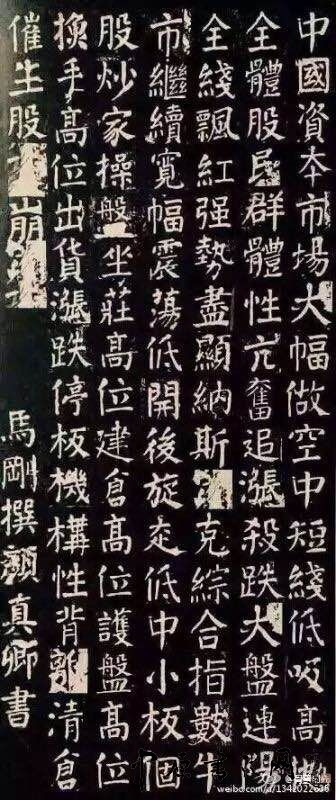 中國資本市場大幅做空中短綫低吸高
全體股民群體性亢奮追漲殺跌大盤連陽
全綫飄紅强勢盡顯納斯克綜合指數牛
市繼續寬幅震蕩低開後旋走低中小板個
股炒家操盤坐莊高位建倉高位護盤高位
換手高位出貨漲跌停板機構性背離清倉
催生股崩
馬剛撰顏真卿書